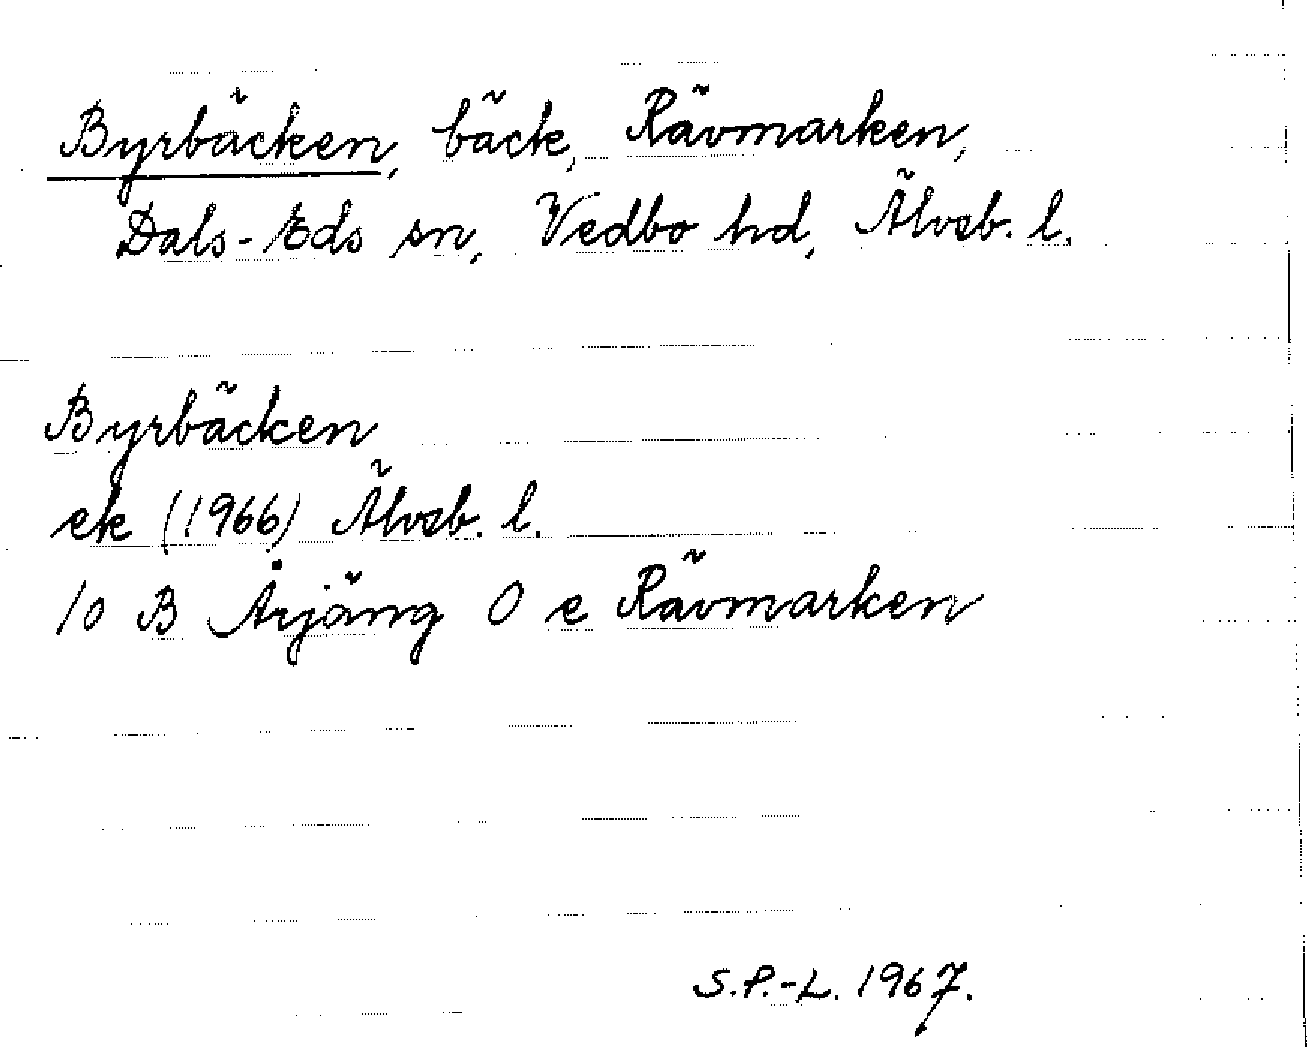 Byrbäcken, bäck, Rävmarken,
Dals-Eds sn, Vedbo hd, Älvsb. l.
Byrbäcken
ek (1966) Älvsb. l.
10 B Årjäng 0 e Rävmarken
S.P.-L. 1967.